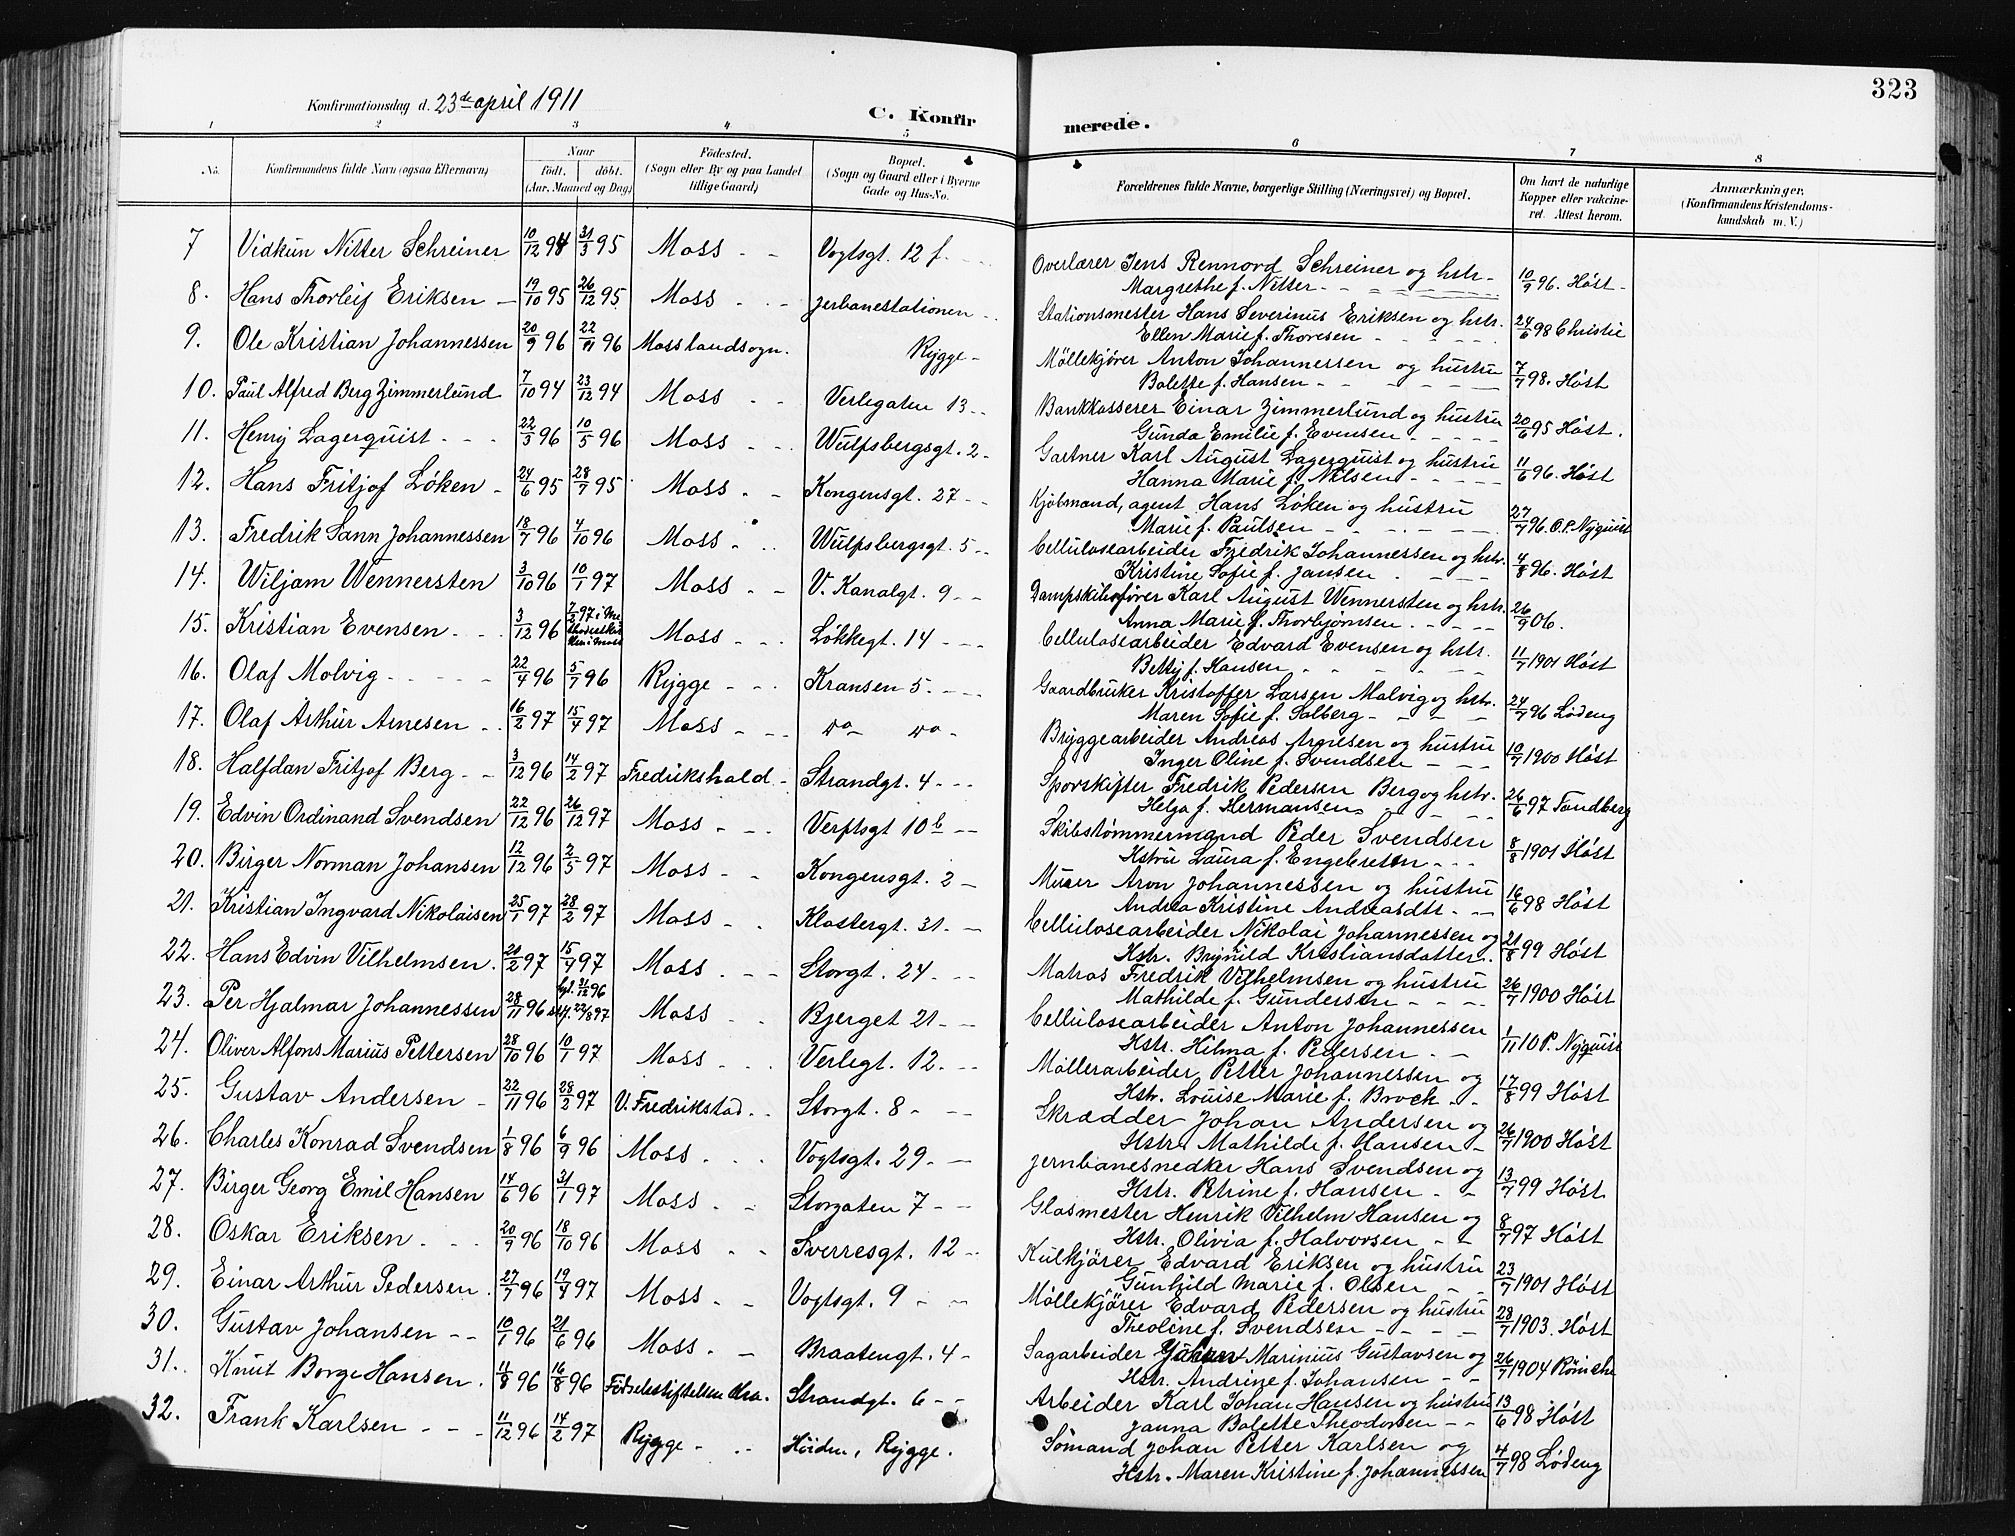 323
Konfirmationsdag d. 23de april 1911
C. Konfirmerede.
1 2 3 4 5 6 7 8
No. Konfirmandens fulde Navn (ogsaa Efternavn) Naar født. døbt. (Aar, Maaned og Dag) Fødested. (Sogn eller By og paa Landet tillige Gaard) Bopæl. (Sogn og Gaard eller i Byerne Gade og Hus-No. Forældrenes fulde Navne, borgerlige Stilling (Næringsvei) og Bopæl. Om havt de naturlige Kopper eller vakcineret. Attest herom. Anmærkninger. (Konfirmandens Kristendomskundskab m. V.)
7 Vidkun Nitter Schreiner 10/12 94 31/3 95 Moss Vogtsgt. 12 f. Overlærer Jens Rennord Schreiner og hstr. 10/9 96. Høst
Margrethe f. Nitter
8. Hans Thorleif Eriksen 19/10 95 26/12 95 Moss Jerbanestationen Stationsmester Hans Severinus Eriksen og hstr. 24/6 98 Christie
Ellen Marie f. Thoresen
9. Ole Kristian Johannessen 20/9 96 22/11 96 Mosslandsogn. Rygge Møllekjører Anton Johannessen og hustru 7/7 98. Høst
Bolette f. Hansen
10. Paul Alfred Berg Zimmerlund 7/10 94 23/12 94 Moss Verlegaten 13 Bankkasserer Einar Zimmerlund og hustru 20/6 95 Høst.
Gunda Emilie f. Evensen
11. Henry Lagerquist 22/3 96 10/5 96 Moss Wulfsbergsgt. 2 Gartner Karl August Lagerquist og hustru 11/6 96. Høst
Hanna Marie f. Nilsen
12. Hans Fritjof Løken 24/6 95 28/7 95 Moss Kongensgt. 27 Kjøbmand, agent Hans Løken og hustru 27/7 96 O.P. Nyquist
Marie f. Paulsen
13. Fredrik Sann Johannessen 18/7 96 4/10 96 Moss Wulfsbergsgt. 5 Cellulosearbeider Fredrik Johannessen og hstr. 4/8 96. Høst
Kristine Sofie f. Jansen
14. Wiljam Wennersten 3/10 96 10/1 97 Moss V. Kanalgt. 9 Dampskibsfører Karl August Wennersten og hstr. 26/9 06.
Anna Marie f. Thorbjørnsen
15. Kristian Evensen 3/12 96 7/2 97 i Methodistkirken i Moss Moss Løkkegt. 14 Cellulosearbeider Edvard Evensen og hstr. 11/7 1901 Høst
Betty f. Hansen
16. Olaf Molvig 22/4 96 5/7 96 Rygge Kransen 5 Gaardbruker Kristoffer Larsen Malvig og hstr. 24/7 96 Lødeng
Maren Sofie f. Solberg
17. Olaf Arthur Arnesen 16/2 97 15/4 97 Moss do do Bryggearbeider Andreas Arnesen og hustru 10/7 1900 Høst
Inger Oline f. Svendsen
18. Halfdan Fritjof Berg 3/12 96 14/2 97 Fredrikshald Strandgt. 4 Sporskifter Fredrik Pedersen Berg og hstr. 26/6 97 Tandberg
Helga f. Hermansen
19. Edvin Ordinand Svendsen 22/12 96 26/12 97 Moss Verftsgt 10 b Skibstømmermand Peder Svendsen 8/8 1901 Høst
Hstru Laura f. Engebretsen
20. Birger Norman Johansen 12/12 96 2/5 97 Moss Kongensgt. 2 Murer Aron Johannessen og hustru 16/6 98 Høst
Andrea Kristine Andreasdtr.
21. Kristian Ingvard Nikolaisen 25/1 97 28/2 97 Moss Klostergt. 31 Cellulosearbeider Nikolai Johannessen og 21/8 99 Høst
Hstr. Brynhild Kristiansdatter
22. Hans Edvin Vilhelmsen 21/2 97 15/4 97 Moss Storgt. 24 Matros Fredrik Vilhelmsen og hustru 26/7 1900 Høst
Mathilde f. Gundersen
23. Per Hjalmar Johannessen 28/11 96 31/12 96 22/8 97 Moss Bjerget 21 Cellulosearbeider Anton Johannessen 1/11 10 P. Nyquist
Hstr. Hilma f. Pedersen
24. Oliver Alfons Marius Pettersen 28/10 96 10/1 97 Moss Verlegt. 12 Møllerarbeider Petter Johannessen og 17/8 99 Høst
Hstr. Louise Marie f. Brock
25. Gustav Andersen 22/11 96 28/2 97 V. Fredrikstad Storgt. 8 Skrædder Johan Andersen og 26/7 1900 Høst
Hstr. Mathilde f. Hansen
26. Charles Konrad Svendsen 1/8 96 6/9 96 Moss Vogtsgt. 29 Jernbanesnedker Hans Svendsen og 13/7 99 Høst
Hstr. Petrine f. Hansen
27. Birger Georg Emil Hansen 14/6 96 31/1 97 Moss Storgaten 7 Glasmester Henrik Vilhelm Hansen og 8/7 97 Høst
Hstr. Olivia f. Halvorsen
28. Oskar Eriksen 20/9 96 18/10 96 Moss Sverresgt. 12 Kulkjører Edvard Eriksen og hustru 23/7 1901 Høst
Gunhild Marie f. Olsen
29. Einar Arthur Pedersen 27/7 96 19/4 97 Moss Vogtsgt. 9 Møllekjører Edvard Pedersen og hustru 28/7 1903. Høst
Theoline f. Svendsen
30. Gustav Johansen 10/1 96 21/6 96 Moss Braatengt. 4 Sagarbeider Johan Marinius Gustavsen og 26/7 1904 Rømcke
Hstr. Andrine f. Johansen
31. Knut Borge Hansen 11/8 96 16/8 96 Fødselsstiftelsen Kra. Strandgt. 6 Arbeider Karl Johan Hansen og hustru 13/6 98 Høst
Janna Bolette Theodorsen
32. Frank Karlsen 11/12 96 14/2 97 Rygge Høiden, Rygge. Sømand Johan Petter Karlsen og 4/7 98 Lødeng
Hstr. Maren Kristine f. Johannessen